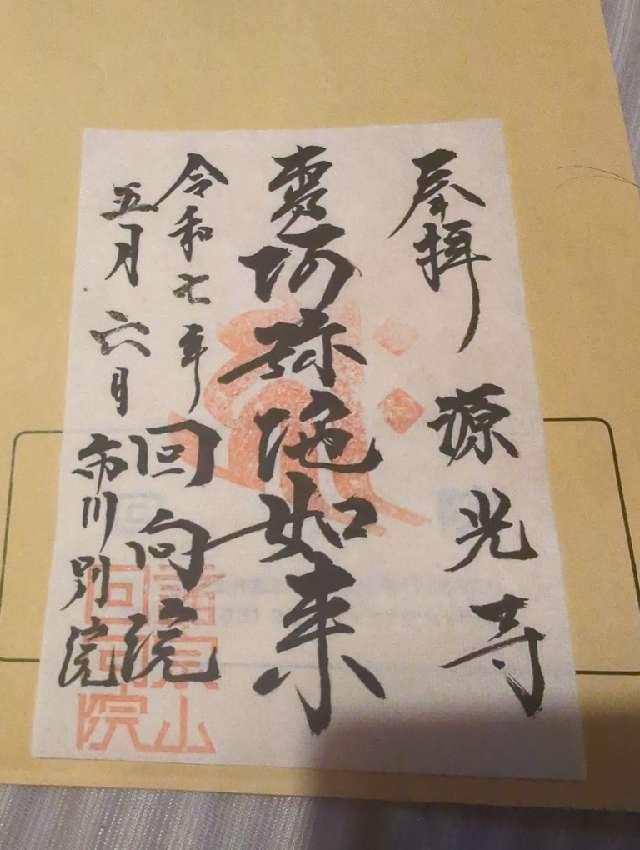 奉拝
源光寺
阿弥陀如来
令和七年
五月六日
回向院
市川別院
諸宗山
回向院